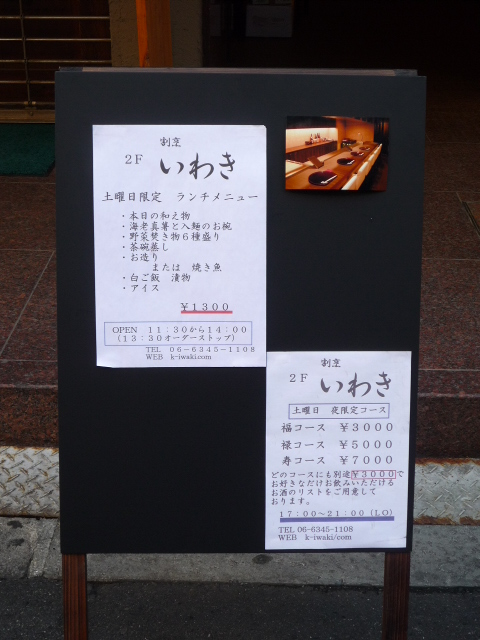 割烹
2F いわき
土曜日限定 ランチメニュー
・本日の和え物
・海老真薯と入麺のお椀
・野菜焚き物6種盛り
・茶碗蒸し
・お造り
または 焼き魚
・白ご飯 漬物
・アイス
¥1300
OPEN 11:30から14:00
(13:30オーダーストップ)
TEL 06-6345-1108
WEB k-iwaki.com
割烹
2F いわき
土曜日 夜限定コース
福コース ¥3000
禄コース ¥5000
寿コース ¥7000
どのコースにも別途¥3000で
お好きなだけお飲みいただける
お酒のリストをご用意して
おります。
17:00~21:00(LO)
TEL 06-6345-1108
WEB k-iwaki/com